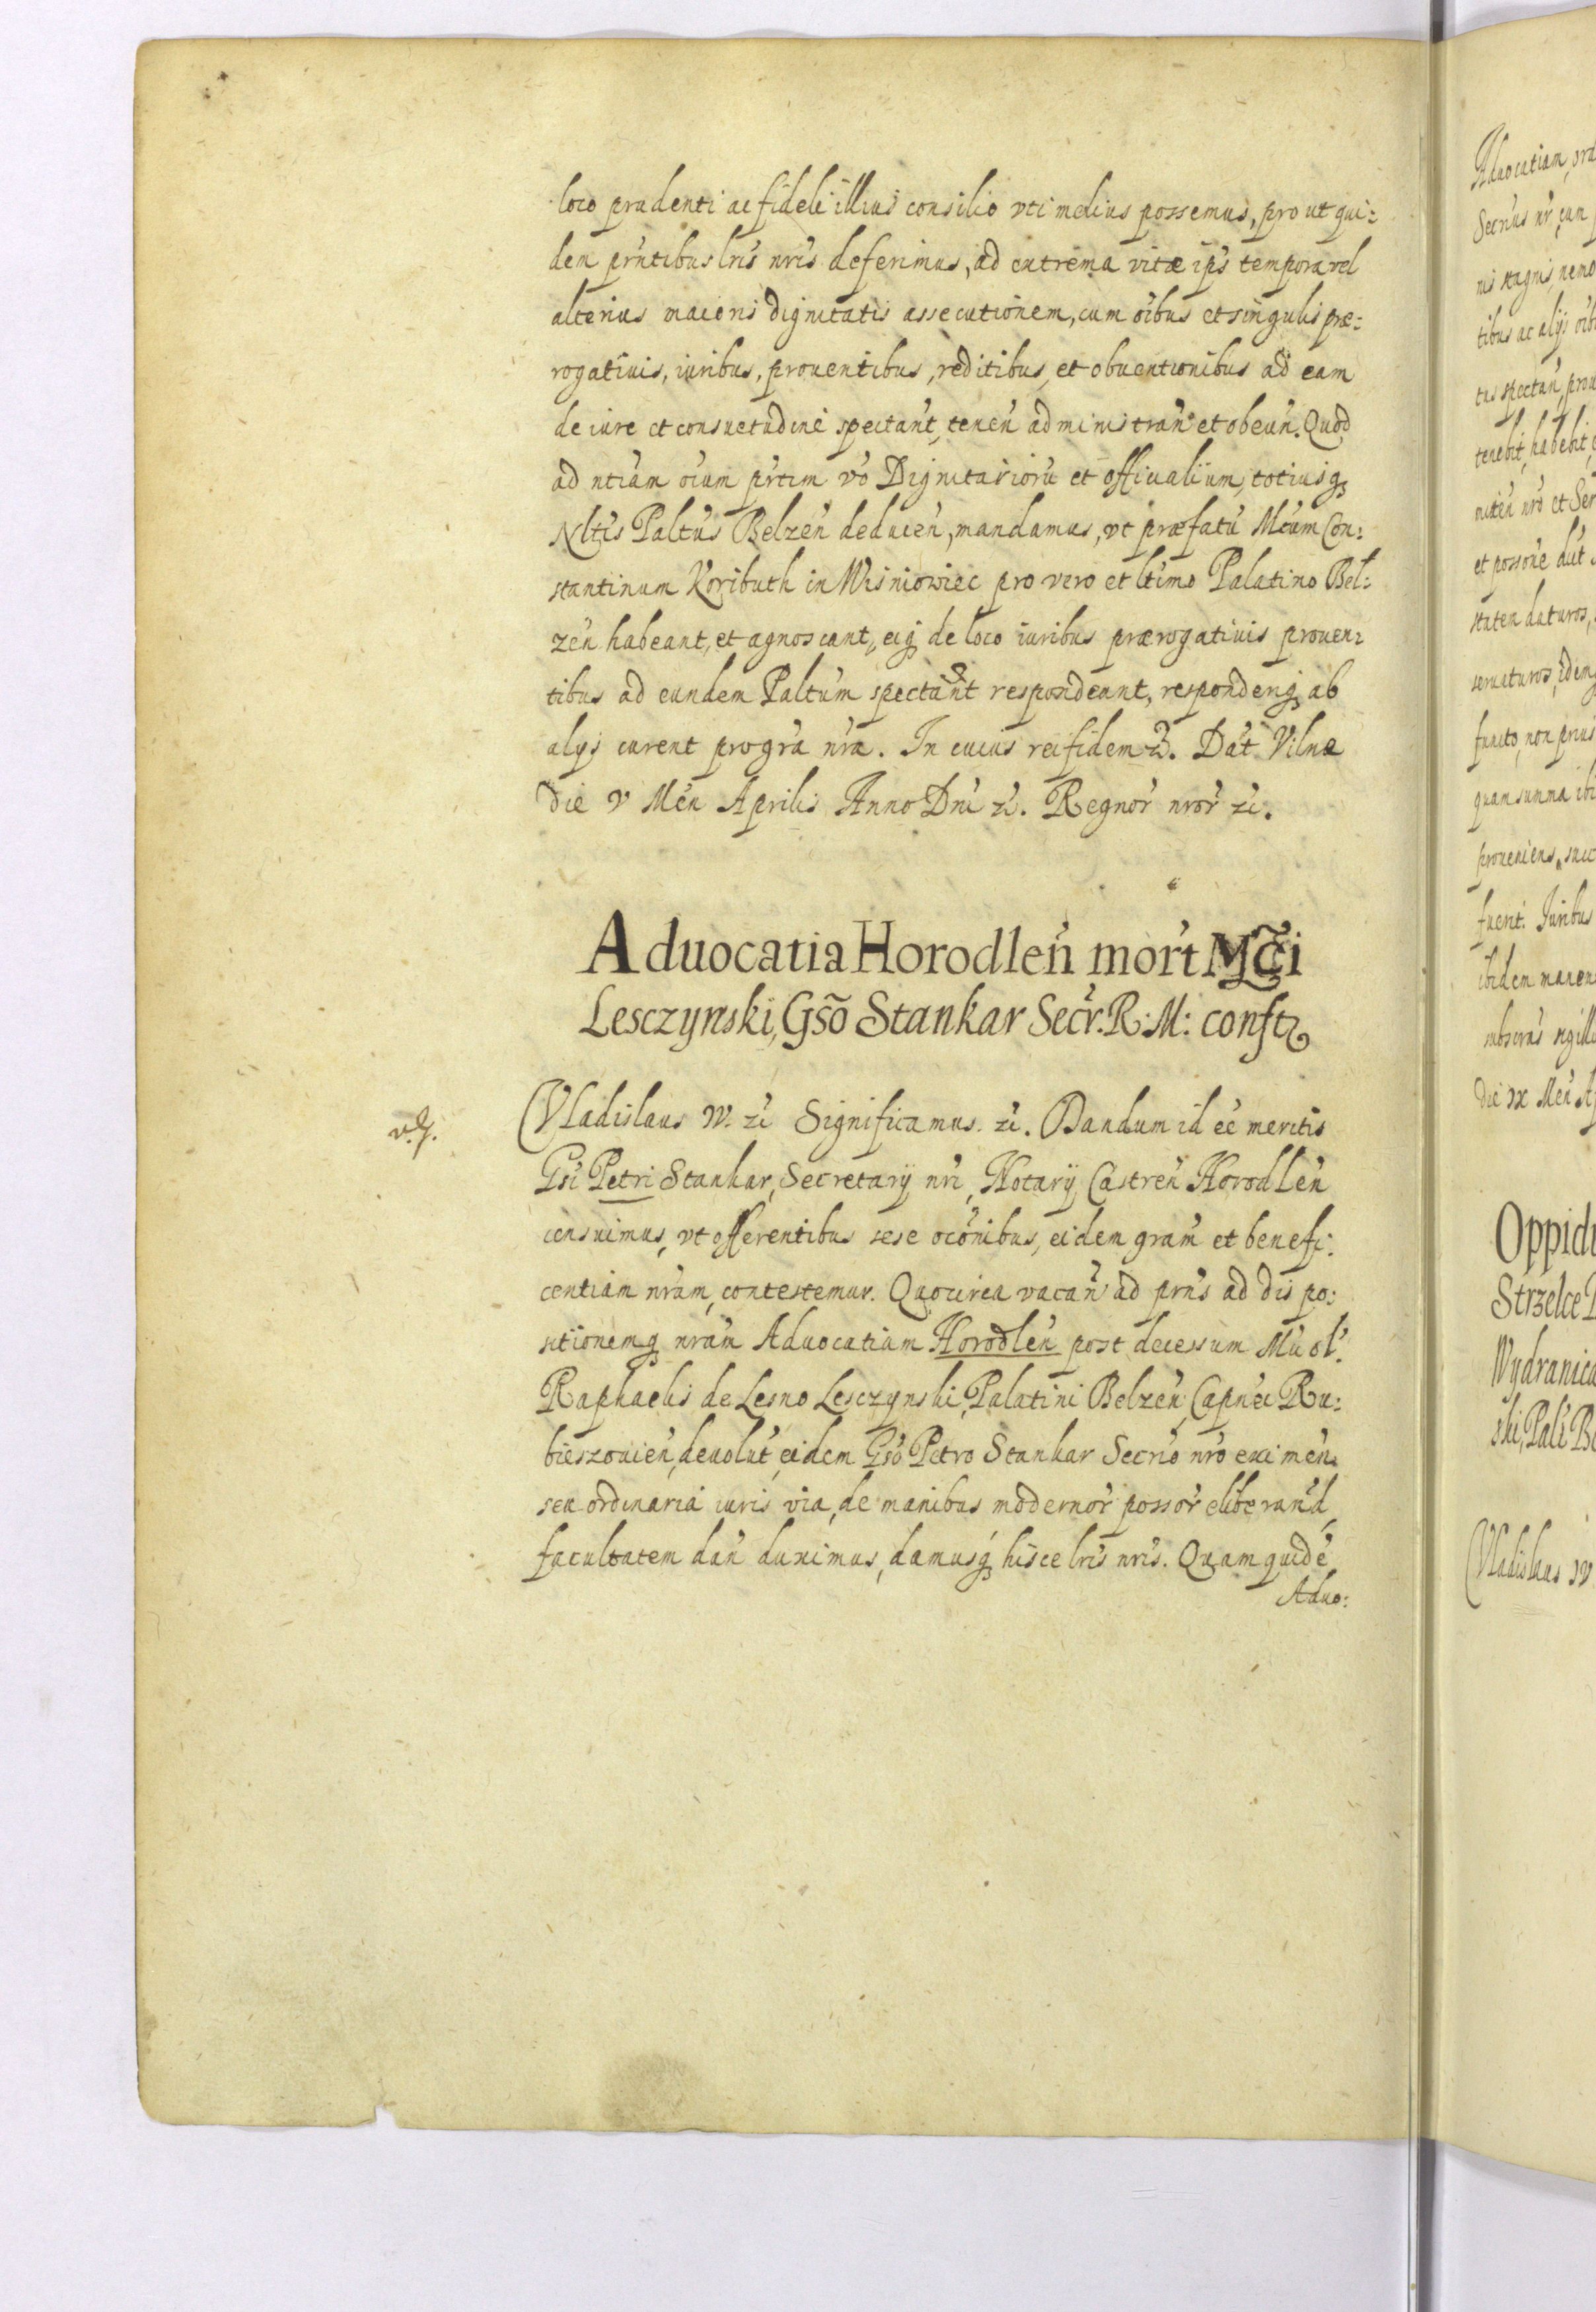 loco prudenti ac fideli illius consilio vti melius possemus, pro ut qui:
dem prńtibus lris nris deferimus, ad extrema vitæ ips tempora vel
alterius maioris dignitatis assecutionem, cum oibus et singulis præ:
rogatiuis, iuribus, prouentibus, reditibus, et obuentionibus ad eam
de iure et consuetudine spectant, tenen administran et obeun. Quod
ad ntiam oium prtim vo Dignitarioru et officialium, totiusq
Nltis Paltus Belzen deducen, mandamus, vt præfatu Mcum Con:
stantinum Koributh in Wisniowiec pro vero et ltimo Palatino Bel:
zen habeant, et agnoscant, eiq de loco iuribus prærogatiuis prouen:
tibus ad eundem Paltum spectant respondeant, responderiq ab
alijs curent pro gra nra. In cuius rei fidem zc. Dat Vilnæ
Die V Men Aprilis Anno Dni zc. Regnor nror zc.
Aduocatia Horodlen mort Mci
Lesczynski, Gso Stankar Secr. R: M: confr
Vladislaus IV. zc Significamus. zc. Dandum id ee meritis
Gsi Petri Stankar, Secretarij nri, Notarij Castren Horodlen
censuimus, vt offerentibus sese oconibus, eidem gram et benefi:
centiam nram, contestemur. Quocirca vacan ad prns ad dispo:
sitionemq nram Aduocatiam Horodlen post decessum M ol.
Raphaelis de Lesno Lesczynski, Palatini Belzen, Capnei Ru:
bieszouien, deuolut, eidem Gso Petro Stankar Secrio nro eximen.
seu ordinaria iuris via, de manibus modernor possor eliberand,
facultatem dan duximus, damusq hisce lris nris. Quam quide
Aduo:
Aduocatiam
Secrius nr, cum
nis stagnis, nemo
tibus ac alijs oib
tus spectan, prou
tenebit, habebit,
et possone
staten daturos,
seruaturos, idemq
facto, non prius
quam summa ibi
proueniens, succ
fuerit. Iuribus
ibidem manen
subscrus sigillo
Die IX Men
Oppid
Strzelce
Wydranica
ski, Pali Be
Vladislaus IV